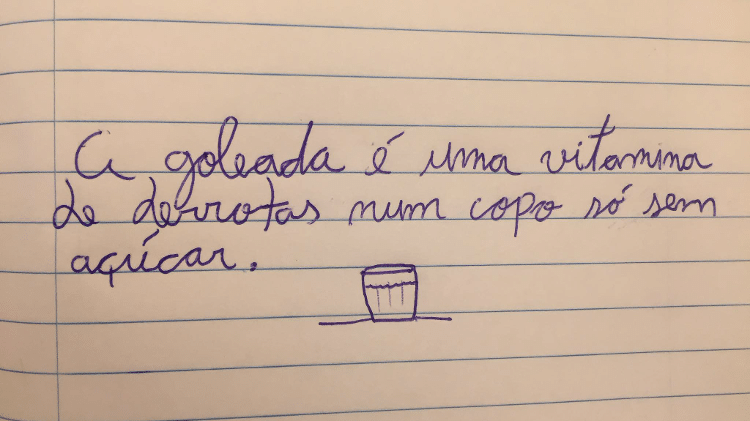 A goleada é uma vitamina
de derrotas num copo só sem
açúcar.